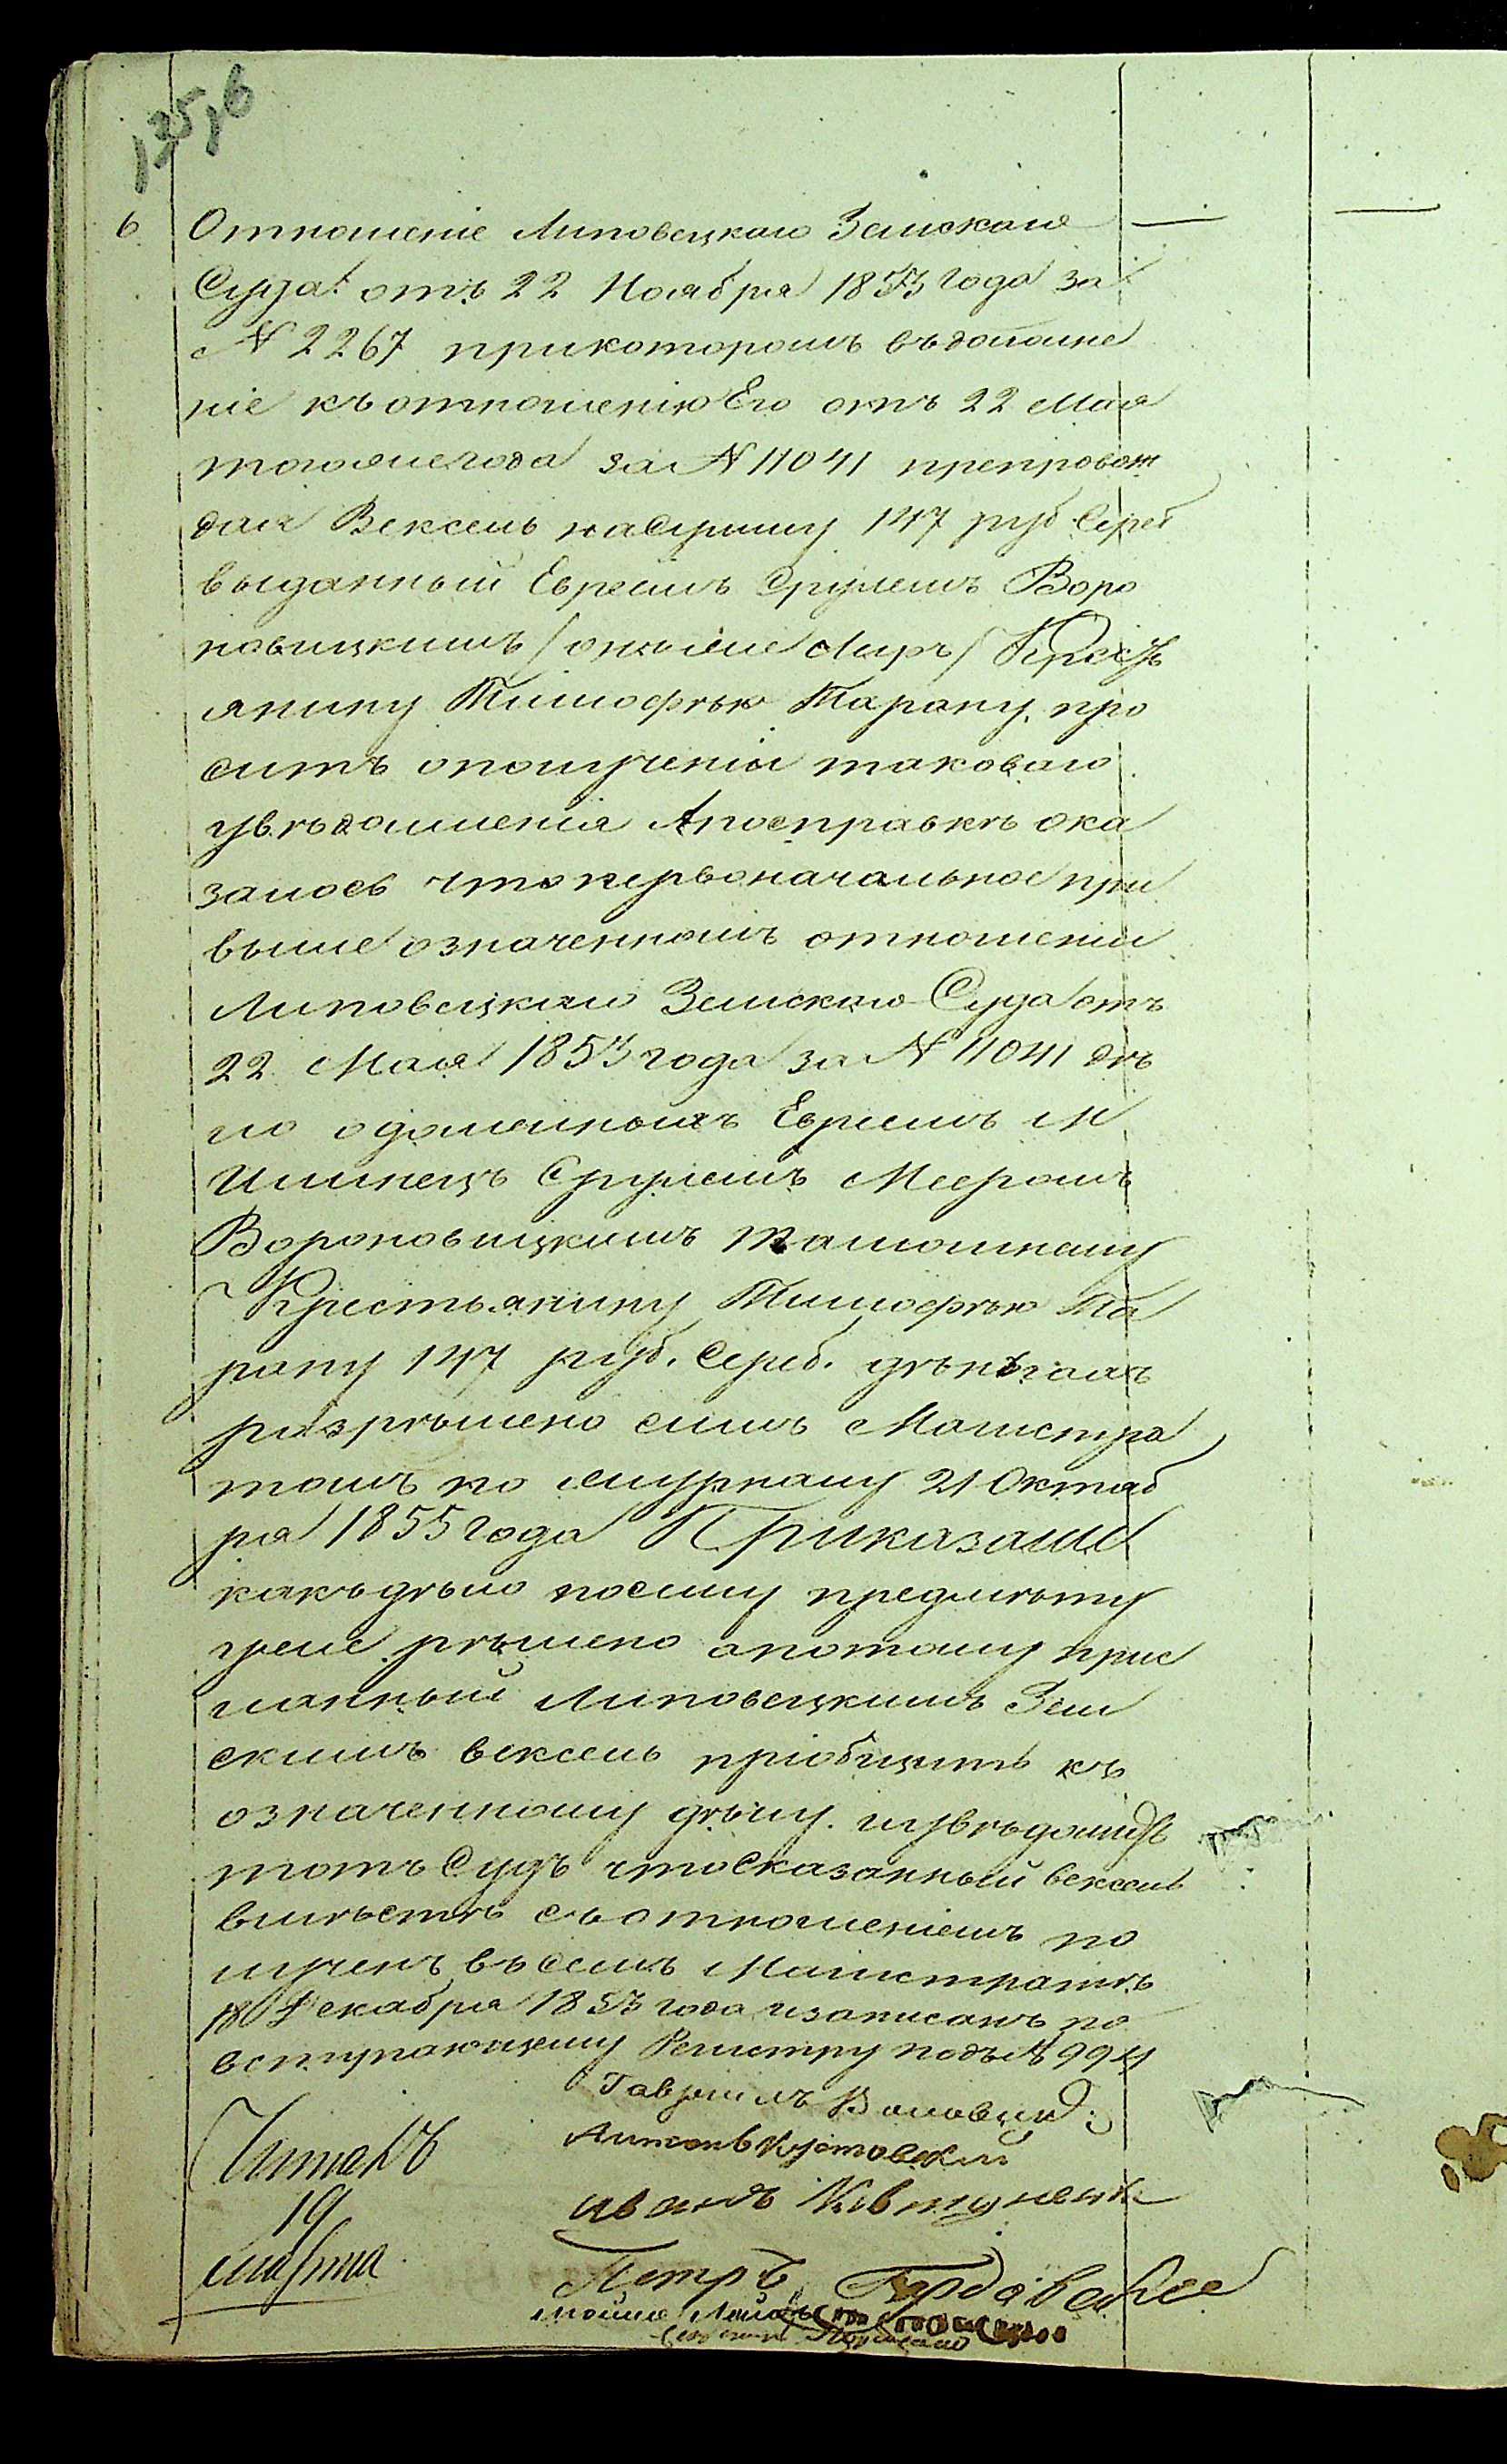 135,6
6. Отношеніе Липовецкаго Земскаго
Суда отъ 22 Ноября 1853 года за
№ 2267 прикоторомъ въдополне
ніе къ отношенію Его отъ 22 Мая
тогоже года за № 11041 препровож
дая Вексель насумму 147 руб Сереб
выданный Евреемъ Срулемъ Воро
новицкимъ / онъ же Меръ / Кресть
янину Тимофѣю Тарану, про
ситъ ополученіи таковаго
увѣдомленія Апосправкѣ ока
залось чтопервоначальное при
выше означенномъ отношеніи
Липовецкаго Земскаго Суда отъ
22 Мая 1853 года за № 11041 дѣ
ло одолжномъ Евреемъ
Илинецъ Срулемъ Мееромъ
Вороновицкимъ тамошнему
Крестьянину Тимофѣю Та
рану 147 руб. Сереб. дѣньгахъ
разрѣшено симъ Магистра
томъ по журналу 21 Октяб
ря 1855 года Приказали
какъ дѣло посему предмѣту
уже рѣшено апотому прис
ланный Липовецкимъ Зем
скимъ вексель пріобщить къ
означенному дѣлу. иувѣдомить
тотъ Судъ чтосказанный вексель
вмѣстѣ съ отношеніемъ по
лученъ въ семъ Магистратѣ
18 Декабря 1853 года изаписанъ по
вступающему Регистру подъ № 994
Гавріилъ
Антонъ
Читалъ
Иванъ Ковтуненко
19
Марта
Петръ